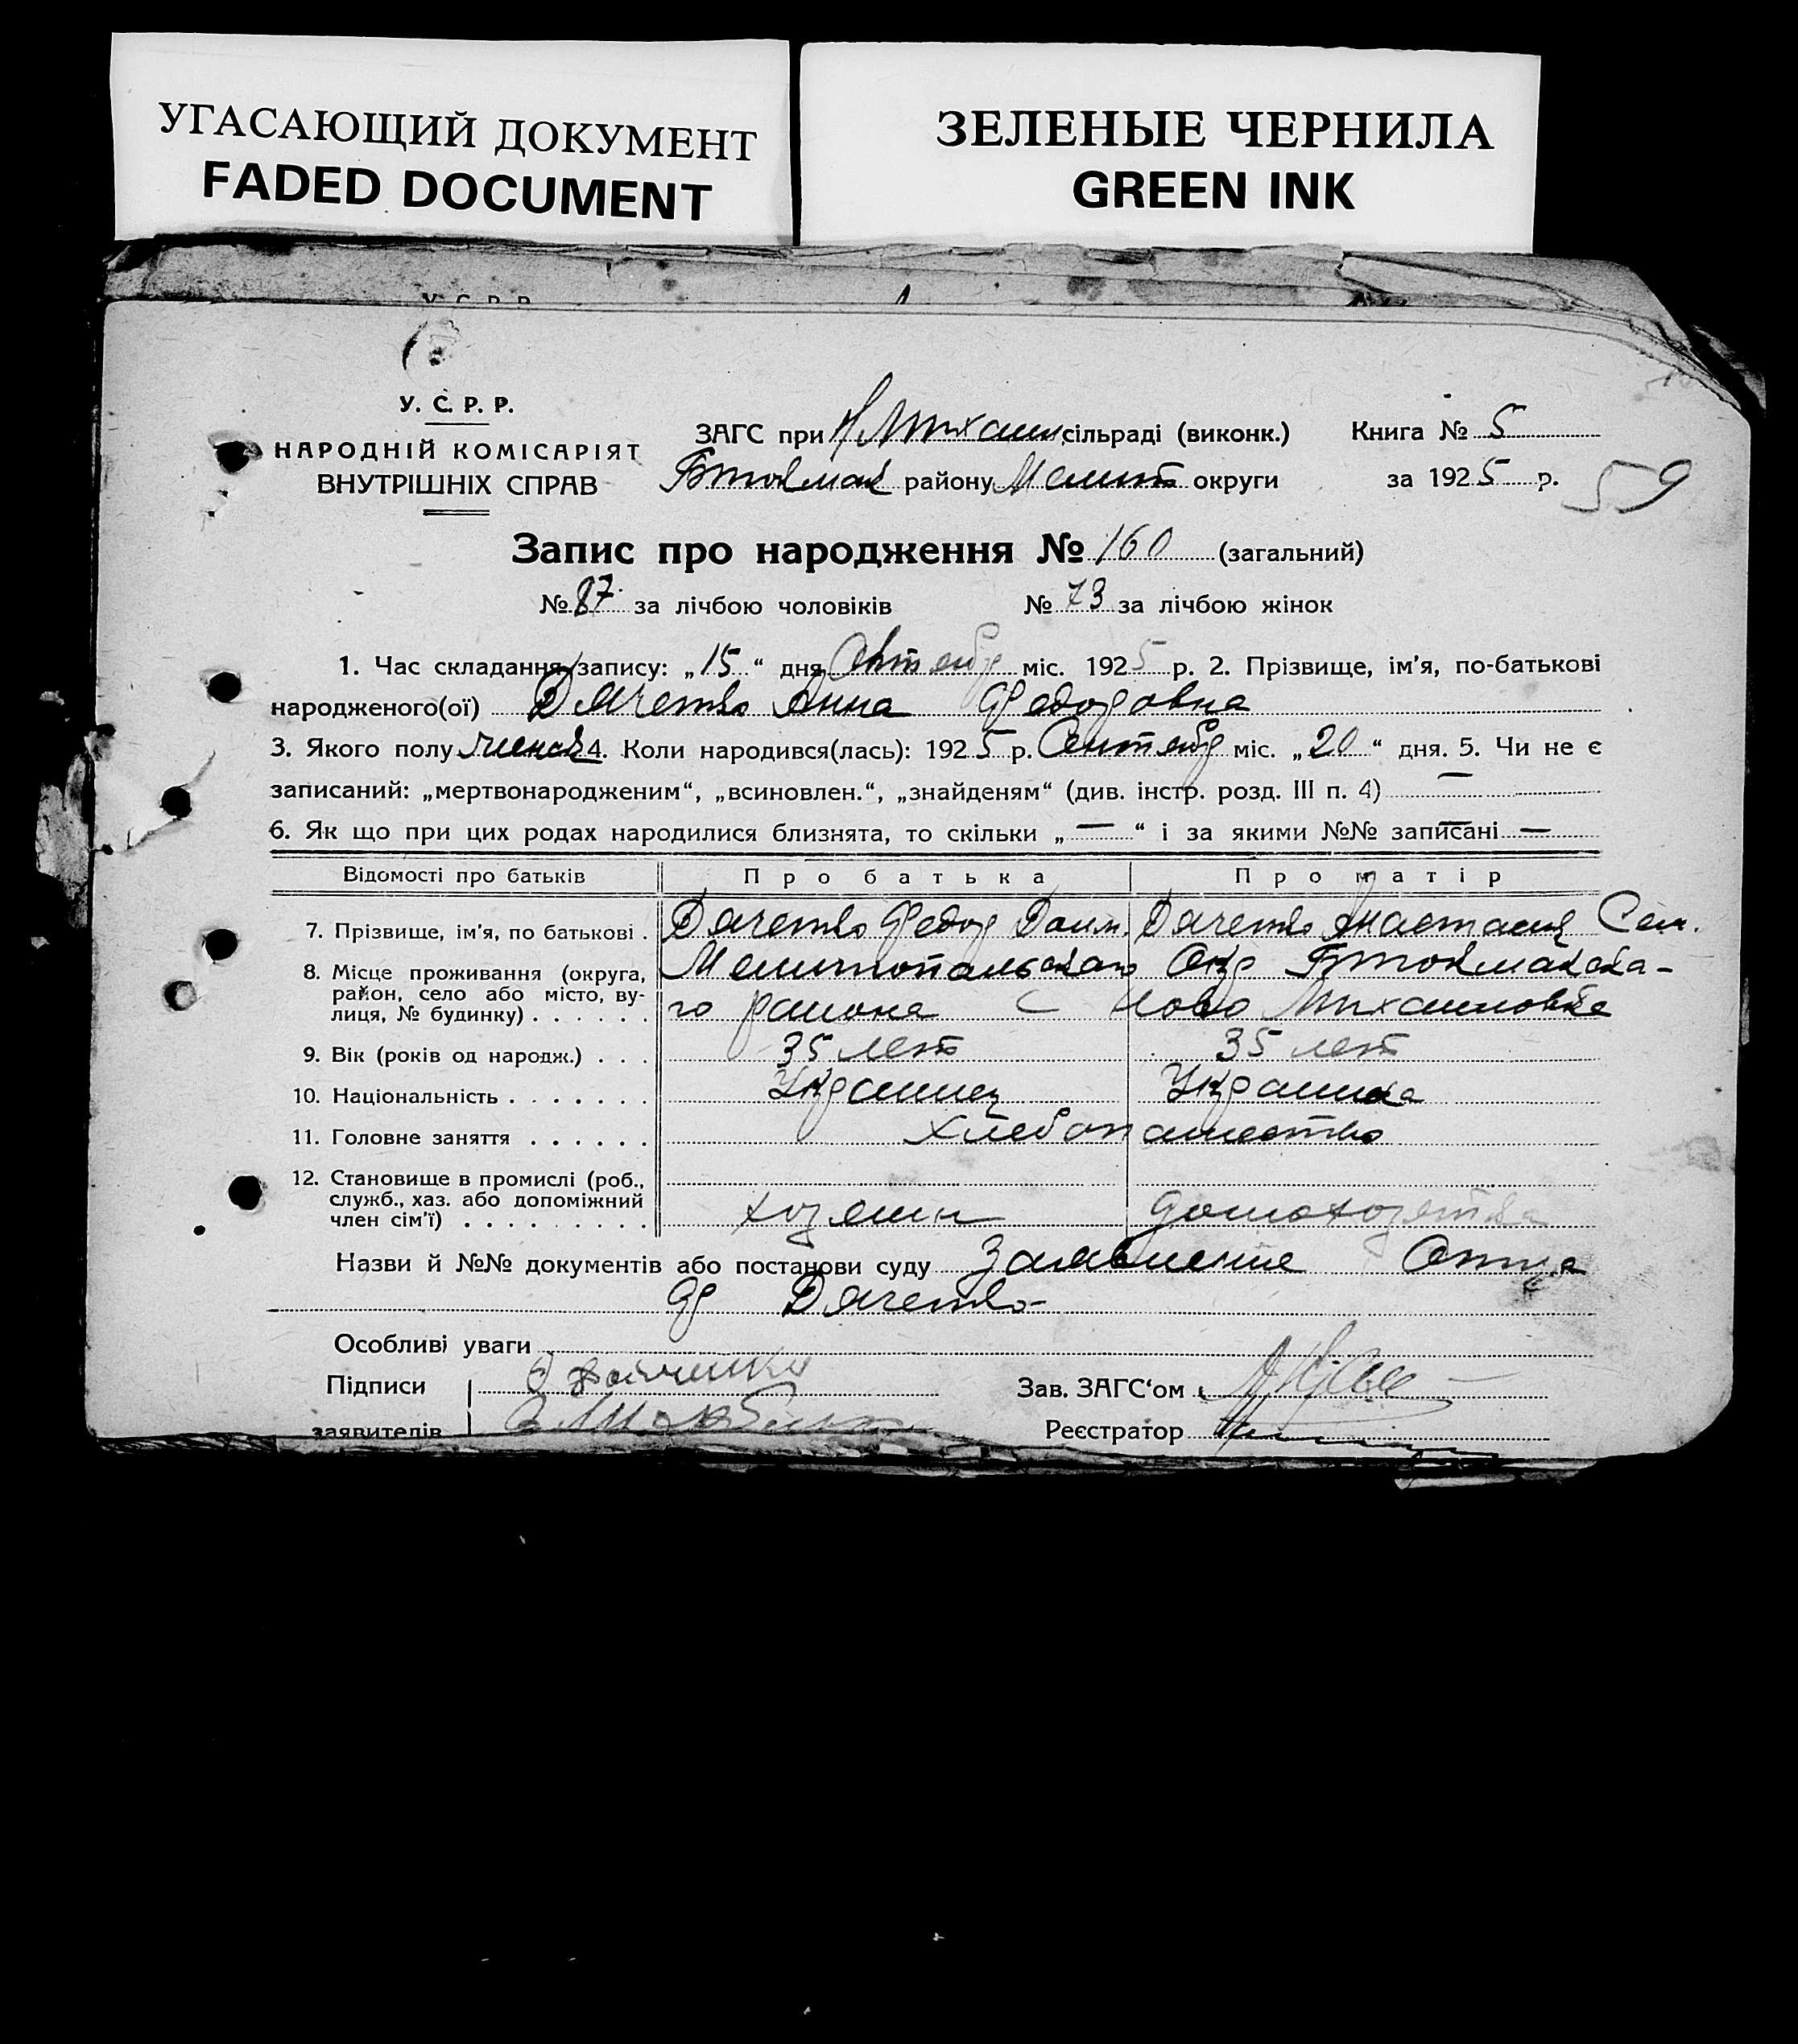 УГАСАЮЩИЙ ДОКУМЕНТ
FADED DOCUMENT
ЗЕЛЕНЫЕ ЧЕРНИЛА
GREEN INK
У. С. Р. Р.
У. С. Р. Р.
НАРОДНІЙ КОМІСАРІЯТ
ВНУТРІШНІХ СПРАВ
ЗАГС при Н Михаил сільраді (виконк.)
Бтокмак району Мелит округи
Книга № 5
за 1925 р.
59
Запис про народження № 160 (загальний)
№ 87 за лічбою чоловіків № 73 за лічбою жінок
1. Час складання запису: „15“ дня Октябр міс. 1925 р. 2. Прізвище, ім'я, по-батькові
народженого(ої) Дяченко Анна Федоровна
3. Якого полу женск 4. Коли народився(лась): 1925 р. Сентябр міс. „20“ дня. 5. Чи не є
записаний: „мертвонародженим“, „всиновлен.“, „знайденям“ (див. інстр. розд. III п. 4) —
6. Як що при цих родах народилися близнята, то скільки „—“ і за якими №№ записані —
Відомості про батьків Про батька Про матір
7. Прізвище, ім'я, по батькові . Дяченко Федор Дяченко Анастасия Сем.
8. Місце проживання (округа, район, село або місто, вулиця, № будинку) . . . . . . Мелитопольского Окр Бтокмакска-
го района с Ново Михайловке
9. Вік (років од народж.) . . . 35 лет 35 лет
10. Національність . . . . . . . Украинец Украинка
11. Головне заняття . . . . . . Хлебопашество
12. Становище в промислі (роб.,
служб., хаз. або допоміжний
член сім'ї) . . . . . . . . . хозяин домохозяйка
Назви й №№ документів або постанови суду Заявление Отца
Ф Дяченко
Особливі уваги
Підписи
заявителів
Зав. ЗАГС'ом
Реєстратор